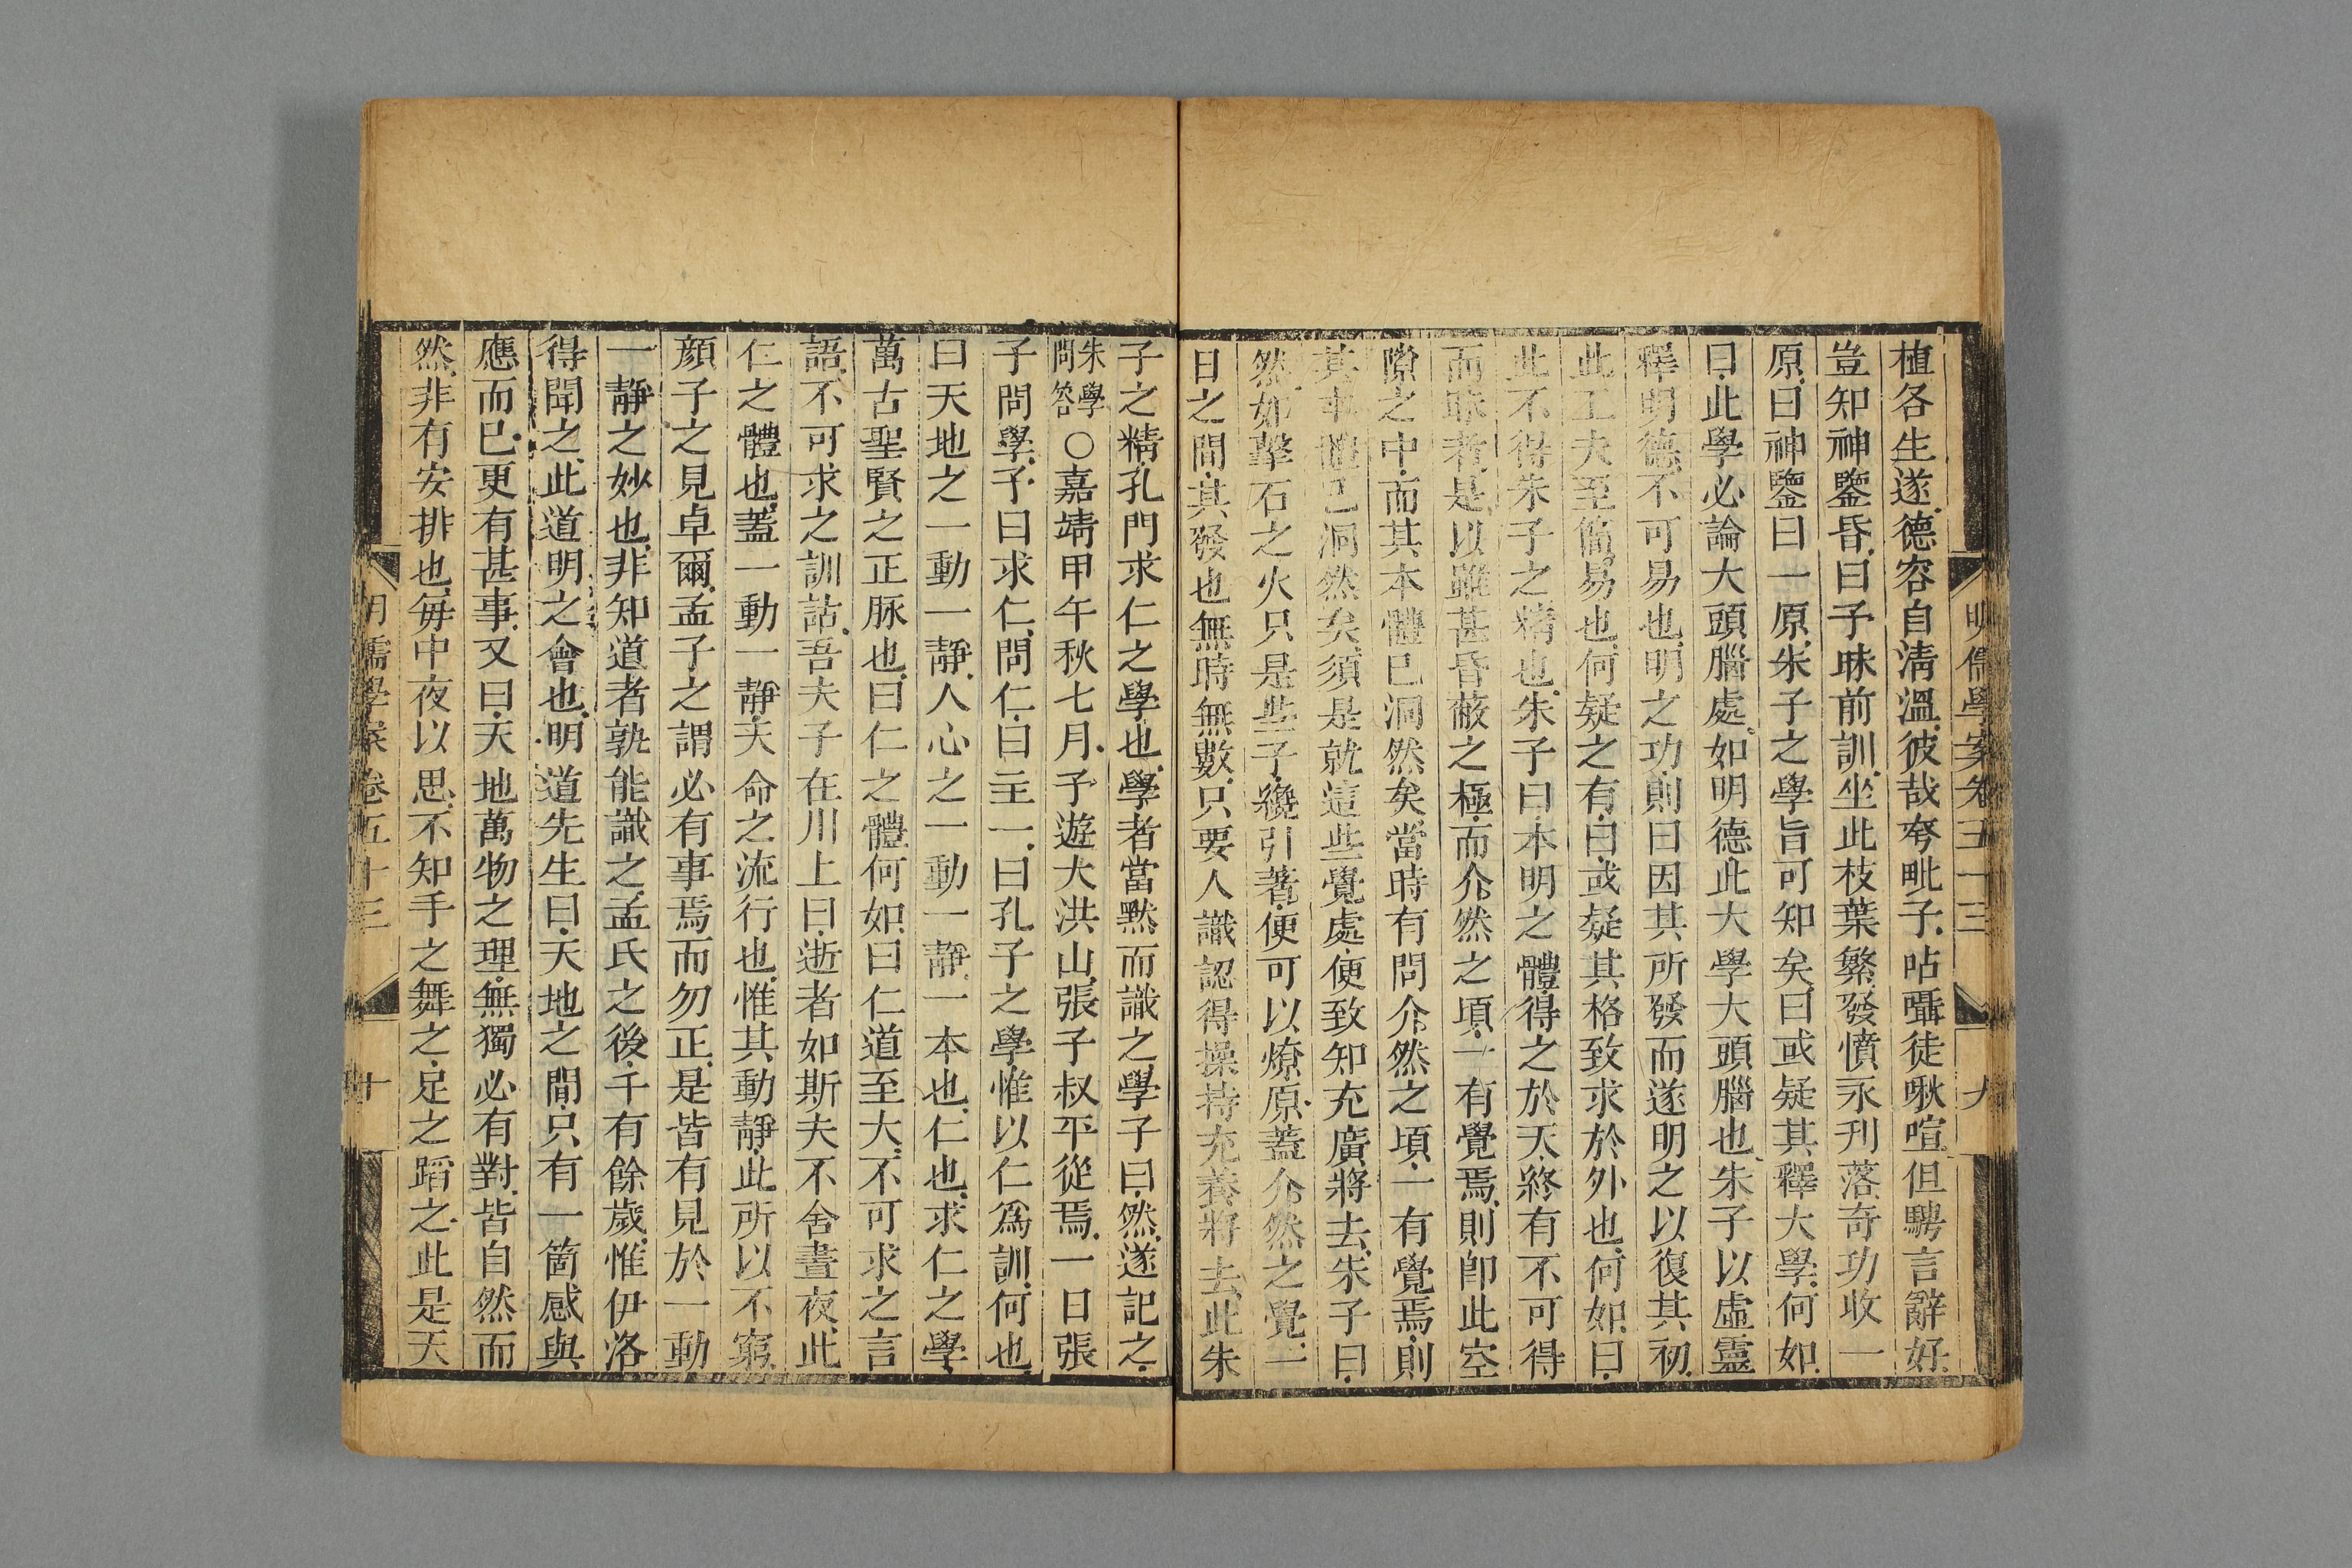 明儒學案卷五十三
九
植各生遂.德容自清溫.彼哉夸毗子.呫囁徒啾喧.但騁言辭好.
豈知神鑒昏.曰予昧前訓.坐此枝葉繁.發憤永刋落.奇功收一
原.曰神鑒曰一原.朱子之學.旨可知矣.曰或疑其釋大學.何如.
曰.此學必論大頭腦處.如明德.此大學大頭腦也.朱子以虛靈
釋明德.不可易也.明之之功.則曰因其所發而遂明之.以復其初.
此工夫至簡易也.何疑之有.曰.或疑其格致求於外也.何如.曰.
此不得朱子之精也.朱子曰.本明之體.得之於天.終有不可得
而昧者.是以雖甚昏蔽之極.而介然之頃.一有覺焉.則卽此空
隙之中.而其本體已洞然矣.當時有問介然之頃.一有覺焉.則
其本體已洞然矣.須是就這些覺處.便致知充廣將去.朱子曰.
然.如擊石之火.只是些子.纔引著.便可以燎原.蓋介然之覺.一
日之間.其發也無時無數.只要人識認得.操持充養將去.此朱
子之精.孔門求仁之學也.學者當黙而識之.學子曰.然.遂記之.
朱學問答○嘉靖甲午秋七月.予遊大洪山.張子叔平從焉.一日張
子問學.子曰求仁.問仁.曰主一.曰孔子之學.惟以仁爲訓.何也.
曰天地之一動一靜.人心之一動一靜.一本也.仁也.求仁之學.
萬古聖賢之正脉也.曰仁之體何如.曰仁道至大.不可求之言
語.不可求之訓詁.吾夫子在川上曰.逝者如斯夫不舍晝夜.此
仁之體也.蓋一動一靜.天命之流行也.惟其動靜.此所以不窮.
顏子之見卓爾.孟子之謂必有事焉而勿正.是皆有見於一動
一靜之妙也.非知道者孰能識之.孟氏之後.千有餘歲.惟伊洛
得聞之.此道明之會也.明道先生曰.天地之間.只有一箇感與
應而已.更有甚事.又曰.天地萬物之理.無獨必有對.皆自然而
然.非有安排也.每中夜以思.不知手之舞之.足之蹈之.此是天
明儒學案卷五十三
十